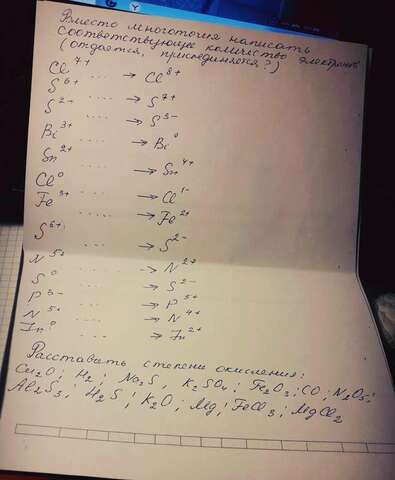 Вместо многоточия написать
соответствующее количество электронов
(отдается, присоединяется?)
Cl⁷⁺ .... → Cl³⁺
S⁶⁺ .... → S⁷⁺
S²⁺ .... → S³⁻
Bi³⁺ .... → Bi⁰
Sn²⁺ .... → Sn⁴⁺
Cl⁰ .... → Cl¹⁻
Fe³⁺ .... → Fe²⁺
S⁶⁺ .... → S²⁻
N⁵⁺ .... → N²⁺
S⁰ .... → S²⁻
P³⁻ .... → P⁵⁺
N⁵⁺ .... → N⁴⁺
Zn⁰ .... → Zn²⁺
Расставить степени окисления:
Cu₂O; H₂; Na₂S, K₂SO₄; Fe₂O₃; CO; N₂O₅;
Al₂S₃; H₂S; K₂O; Mg; FeCl₃; MgCl₂